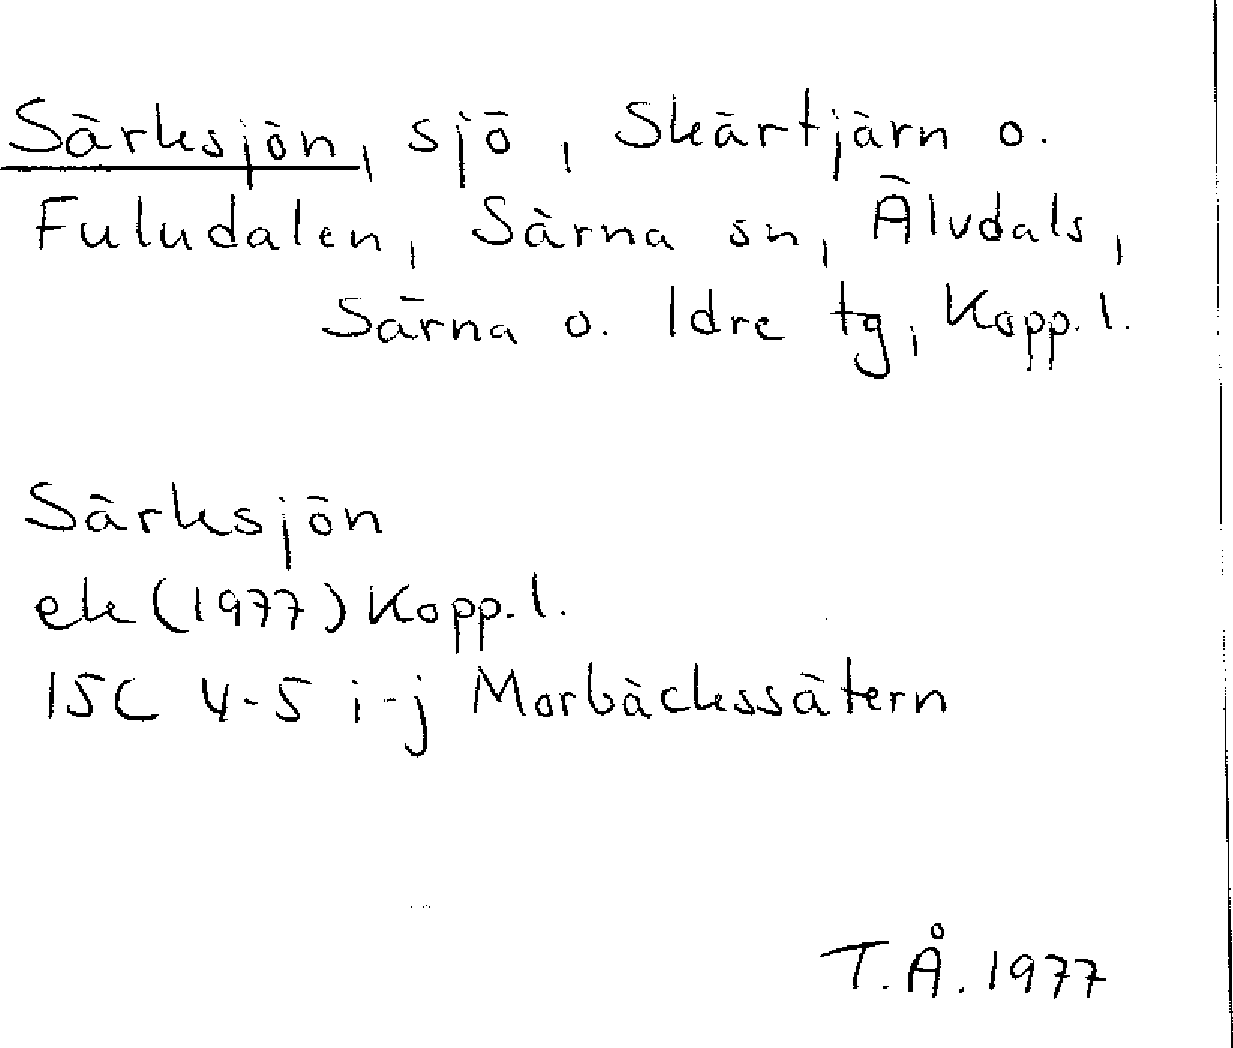 Särksjön, sjö, Skärtjärn o.
Fuludalen, Särna sn, Älvdals,
Särna o. Idre tg, Kopp. l.
Särksjön
ek (1977) Kopp. l.
15C 4-5 i-j Morbäckssätern
T.Å. 1977